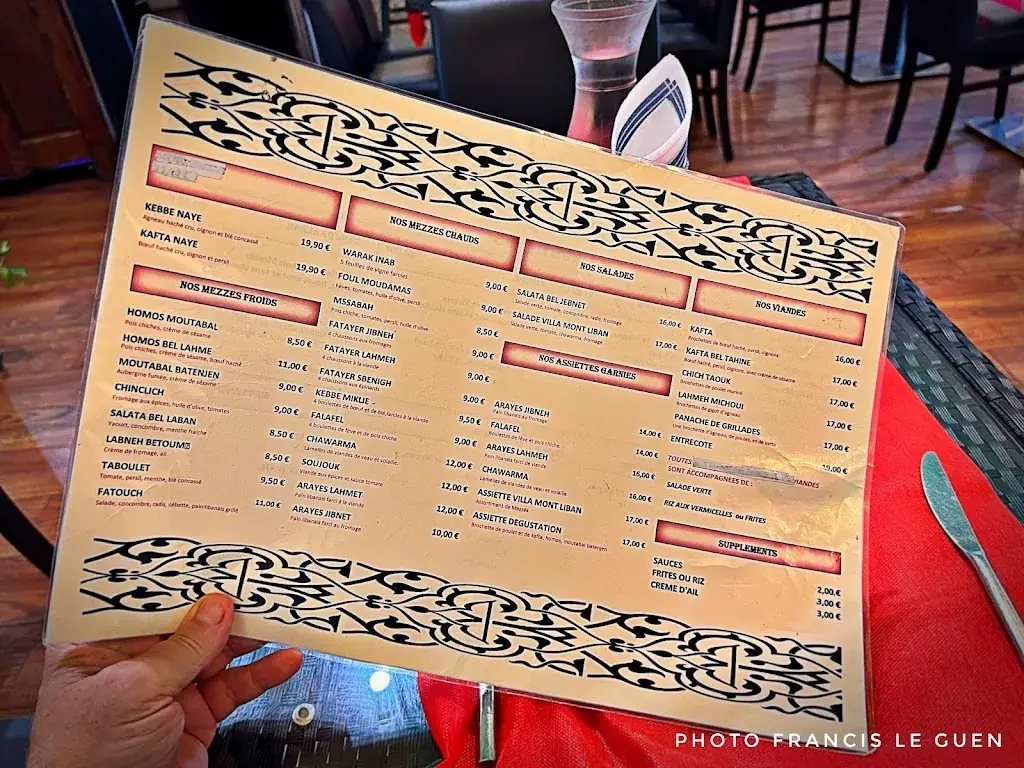 KEBBE NAYE
Agneau haché cru, oignon et blé concassé
19,90 €
KAFTA NAYE
Bœuf haché cru, oignon et persil
19,90 €
NOS MEZZES FROIDS
HOMOS MOUTABAL
Pois chiches, crème de sésame
8,50 €
HOMOS BEL LAHME
Pois chiches, crème de sésame, bœuf haché
11,00 €
MOUTABAL BATENJEN
Aubergine fumée, crème de sésame
9,00 €
CHINCLICH
Fromage aux épices, huile d'olive, tomates
9,00 €
SALATA BEL LABAN
Yaourt, concombre, menthe fraiche
8,50 €
LABNEH BETOUM
Crème de fromage, ail
8,50 €
TABOULET
Tomate, persil, menthe, blé concassé
9,50 €
FATOUCH
Salade, concombre, radis, cébette, pain libanais grillé
11,00 €
NOS MEZZES CHAUDS
WARAK INAB
5 feuilles de vigne farcies
9,00 €
FOUL MOUDAMAS
Fèves, tomates, huile d'olive, persil
9,00 €
MSSABAH
Pois chiche, tomates, persil, huile d'olive
8,50 €
FATAYER JIBNEH
4 chaussons aux fromages
9,00 €
FATAYER LAHMEH
4 chaussons à la viande
9,00 €
FATAYER SBENIGH
4 chaussons aux épinards
9,00 €
KEBBE MIKLIE
4 boulettes de bœuf et de blé, farcies à la viande
9,50 €
FALAFEL
4 boulettes de fève et de pois chiche
9,00 €
CHAWARMA
Lamelles de viandes de veau et volaille,
12,00 €
SOUJOUK
Viande aux épices et sauce tomate
12,00 €
ARAYES LAHMET
Pain libanais farci à la viande
12,00 €
ARAYES JIBNET
Pain libanais farci au fromage
10,00 €
NOS SALADES
SALATA BEL JEBNET
Salade verte, tomate, concombre, radis, fromage
16,00 €
SALADE VILLA MONT LIBAN
Salade verte, tomate, chawarma, fromage
17,00 €
NOS ASSIETTES GARNIES
ARAYES JIBNEH
Pain libanais au fromage
14,00 €
FALAFEL
boulettes de fève et pois chiche
14,00 €
ARAYES LAHMEH
Pain libanais farci de viande
16,00 €
CHAWARMA
Lamelles de viandes de veau et volaille
16,00 €
ASSIETTE VILLA MONT LIBAN
Assortiment de Mezzés
17,00 €
ASSIETTE DEGUSTATION
Brochette de poulet et de kafta, homos, moutabal batenjen
17,00 €
NOS VIANDES
KAFTA
Brochettes de bœuf haché, persil, oignons
16,00 €
KAFTA BEL TAHINE
Bœuf haché, persil, oignons, avec crème de sésame
17,00 €
CHICH TAOUK
Brochettes de poulet mariné
17,00 €
LAHMEH MICHOUI
Brochettes de gigot d'agneau
17,00 €
PANACHE DE GRILLADES
Une brochette d'agneau, de poulet, et de kafta
17,00 €
ENTRECOTE
19,00 €
TOUTES VIANDES
SONT ACCOMPAGNEES DE :
SALADE VERTE
RIZ AUX VERMICELLES ou FRITES
SUPPLEMENTS
SAUCES
2,00 €
FRITES OU RIZ
3,00 €
CREME D'AIL
3,00 €
PHOTO FRANCIS LE GUEN